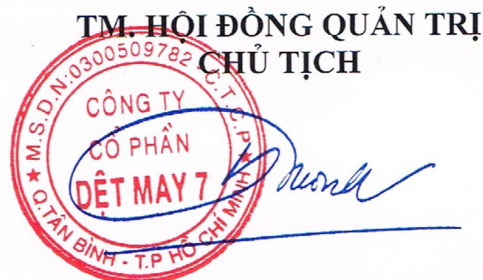 TM. HỘI ĐỒNG QUẢN TRỊ
CHỦ TỊCH
M.S.D.N:0300509782-C.T.C.P
CÔNG TY
CỔ PHẦN
DỆT MAY 7
Q.TÂN BÌNH - T.P HỒ CHÍ MINH